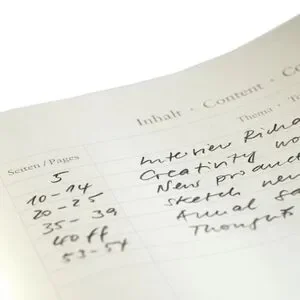 Inhalt · Content · Co
Seiten / Pages Thema · T
5 Interview Richa
10-14 Creativity wo
20-25 News produc
35-39 sketch new
40ff Annual Sa
53-54 Thoughts